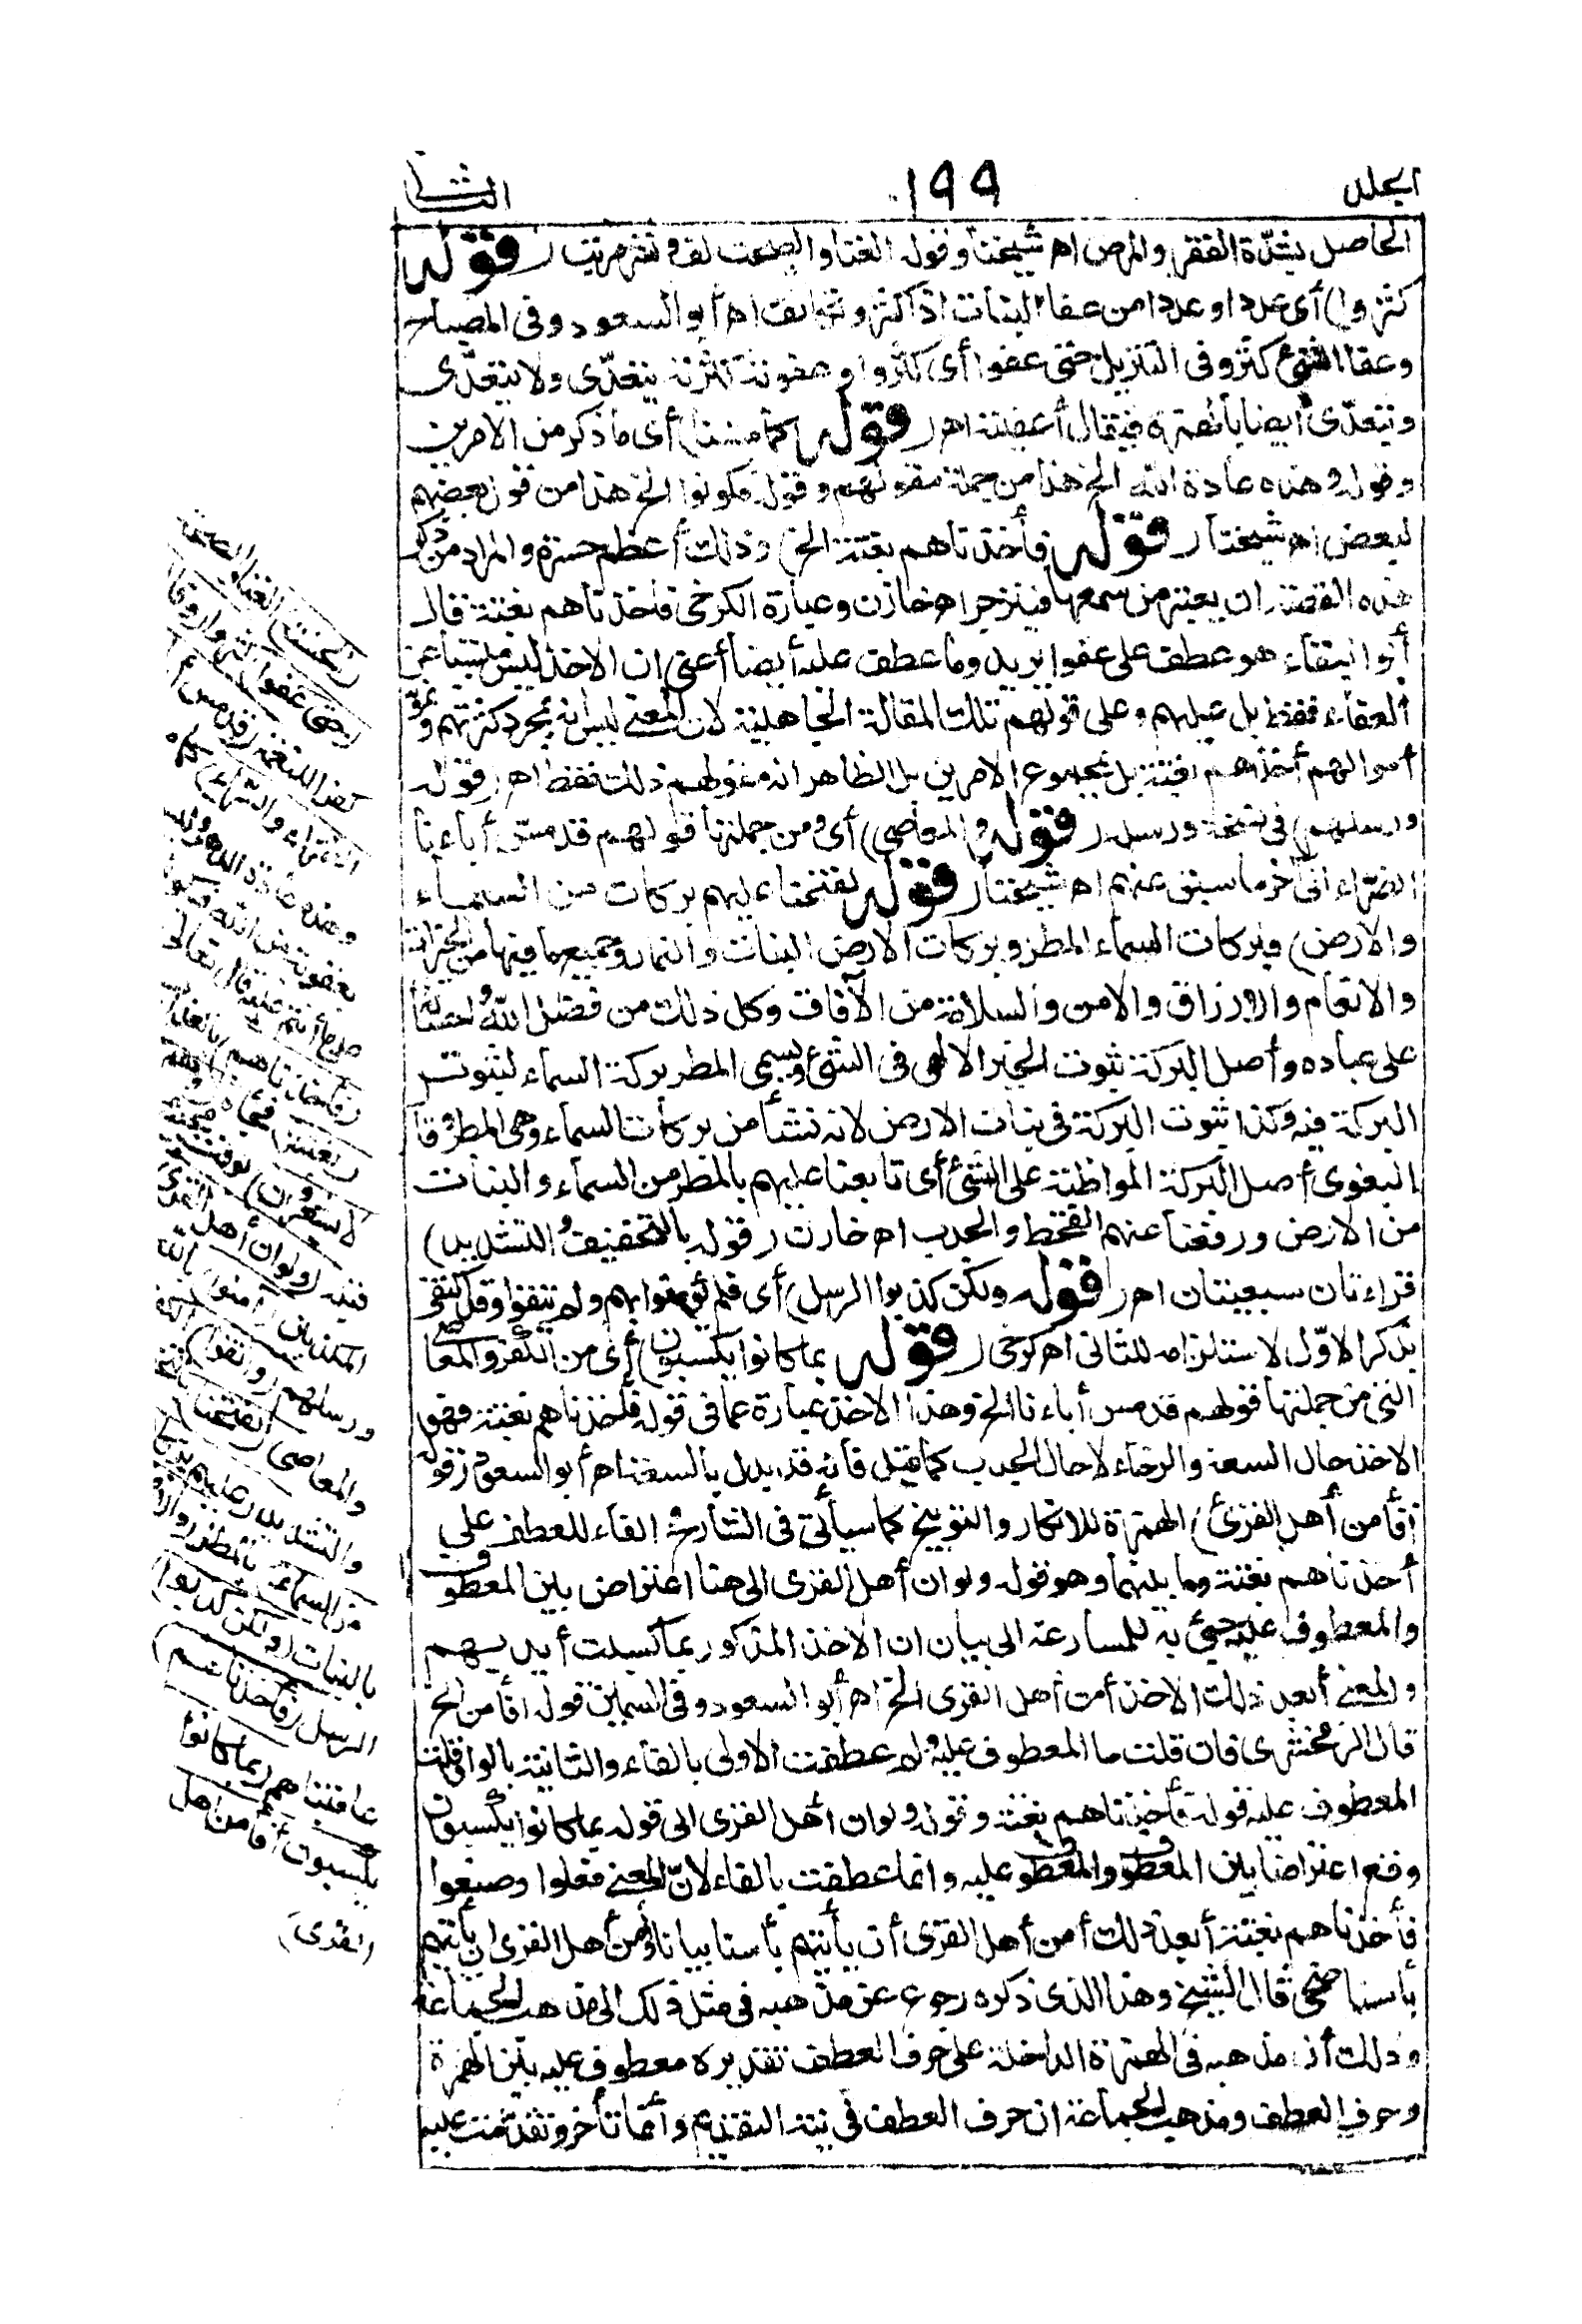 الجلد
١٩٩
الثانى
الحاصل بشدّة الفقر والمرض اه شيخنا وقوله الغنا والصحة لف ونشر مرتب (قوله
كثروا) أى عددا وعددا من عفا النبات اذا كثر وتكاثف اه أبو السعود وفى المصباح
وعفا الشئ كثر وفى التنزيل حتى عفوا أى كثروا وعفوته كثرته يتعدّى ولا يتعدّى
ويتعدّى أيضا بالهمزة فيقال أعفيته اه (قوله كما مسنا) أى ما ذكر من الامرين
وقوله وهذه عادة الله الخ هذا من جملة مقولهم وقوله فكونوا الخ هذا من قول بعضهم
لبعض اه شيخنا (قوله فأخذناهم بغتة الخ) وذلك أعظم حسرة والمراد من ذكر
هذه القصة ان يعتبر من سمعها فينزجر اه خازن وعبارة الكرخى فأخذناهم بغتة قال
أبو البقاء هو عطف على عفوا يريد وما عطف عليه أيضا أعنى ان الاخذ ليس متسببا عن
العفاء فقط بل عليهم وعلى قولهم تلك المقالة الجاهلية لان المعنى ليس انه بمجرد كثرتهم ونمو
أموالهم أخذهم بغتة بل بمجموع الامرين بل الظاهر انه بقولهم ذلك فقط اه (قوله
ورسلهم) فى نسخة ورسله (قوله والمعاصى) أى ومن جملتها قولهم قد مس أباءنا
الضراء الى آخر ما سبق عنهم اه شيخنا (قوله لفتحنا عليهم بركات من السماء
والارض) وبركات السماء المطر وبركات الارض النبات والثمار وجميع ما فيها من الخيرات
والانعام والارزاق والامن والسلامة من الآفات وكل ذلك من فضل الله واحسانه
على عباده وأصل البركة ثبوت الخير الالهى فى الشئ ويسمى المطر بركة السماء لثبوت
البركة فيه وكذا ثبوت البركة فى نبات الارض لانه نشأ من بركات السماء وهى المطر وقال
البغوى أصل البركة المواظبة على الشئ أى تابعنا عليهم بالمطر من السماء والنبات
من الارض ورفعنا عنهم القحط والجدب اه خازن (قوله بالتخفيف والتشديد)
قراءتان سبعيتان اه (قوله ولكن كذبوا الرسل) أى فلم يؤمنوا بهم ولم يتقوا وقد اكتفى
بذكر الاوّل لاستلزامه للثانى اه كرخى (قوله بما كانوا يكسبون) أى من الكفر والمعاصى
التى من جملتها قولهم قد مس أباءنا الخ وهذا الاخذ عبارة عما فى قوله فأخذناهم بغتة فهو
الاخذ حال السعة والرخاء لا حال الجدب كما قيل فانه قد بدل بالسعة اه أبو السعود (قوله
أفأمن أهل القرى) الهمزة للانكار والتوبيخ كما سيأتى فى الشارح الفاء للعطف على
أخذناهم بغتة وما بينهما وهو قوله ولو ان أهل القرى الى هنا اعتراض بين المعطوف
والمعطوف عليه جئ به للمسارعة الى بيان ان الاخذ المذكور بما كسبت أيديهم
والمعنى أبعد ذلك الاخذ أمن أهل القرى الخ اه أبو السعود وفى السمين قوله أفأمن الخ
قال الزمخشرى فان قلت ما المعطوف عليه ولم عطفت الاولى بالفاء والثانية بالواو قلت
المعطوف عليه قوله فأخذناهم بغتة وقوله ولو ان أهل القرى الى قوله بما كانوا يكسبون
وقع اعتراضا بين المعطوف والمعطوف عليه وانما عطفت بالفاء لانّ المعنى فعلوا وصنعوا
فأخذناهم بغتة أبعد ذلك أمن أهل القرى أن يأتيهم بأسنا بياتا وأمن أهل القرى ان يأتيهم
بأسنا ضحى قال الشيخ وهذا الذى ذكره رجوع عن مذهبه فى مثل ذلك الى مذهب الجماعة
وذلك أن مذهبه فى الهمزة الداخلة على حرف العطف تقدير معطوف عليه بين الهمزة
وحرف العطف ومذهب الجماعة ان حرف العطف فى نية التقديم وانما تأخر وتقدمت عليه
(الحسنة) الغنا والصحة
(حتى عفوا) كثروا (وقالوا)
كفرا للنعمة (قد مس آباءنا
الضراء والسراء) كما
وهذه عادة الدهر وليست
بعقوبة من الله فكونوا
على ما أنتم عليه قال تعالى
(فأخذناهم) بالعذاب
(بغتة) فجأة (وهم
لا يشعرون) بوقت مجيئه
قبله (ولو ان أهل القرى)
المكذبين (آمنوا) بالله
ورسلهم (واتقوا) الكفر
والمعاصى (لفتحنا) بالتخفيف
والتشديد (عليهم بركات
من السماء) بالمطر (والارض)
بالنبات (ولكن كذبوا)
الرسل (فأخذناهم)
عاقبناهم (بما كانوا
يكسبون أفأمن أهل
القرى)